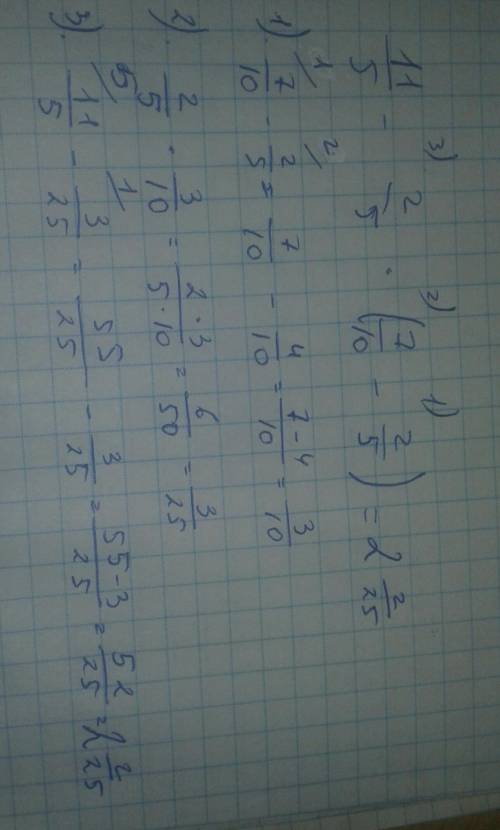 3) 2) 1)
11/5 - 2/5 · (7/10 - 2/5) = 2 2/25
1). 7/10 - 2/5 = 7/10 - 4/10 = 7-4/10 = 3/10
2). 2/5 · 3/10 = 2·3/5·10 = 6/50 = 3/25
3). 11/5 - 3/25 = 55/25 - 3/25 = 55-3/25 = 52/25 = 2 2/25